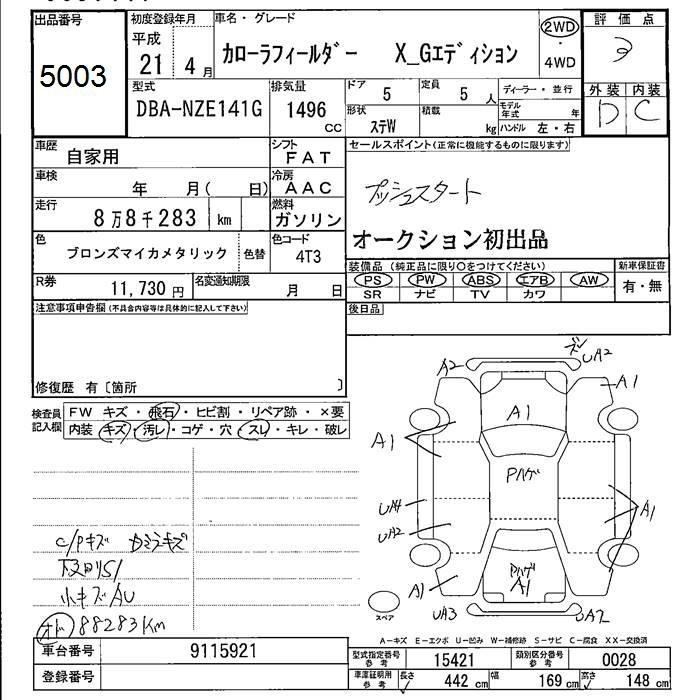 出品番号 初度登録年月 車名・グレード 評価点
5003 平成 21 4月 カローラフィールダー X_Gエディション 2WD・4WD
型式 排気量 ドア 定員 ディーラー・並行 外装 内装
DBA-NZE141G 1496 cc 5 5人 モデル年式 年 D C
形状 ステW 積載 kg ハンドル 左・右
車歴 自家用 シフト FAT セールスポイント(正常に機能するものに限ります)
車検 年 月( 日) 冷房 AAC プッシュスタート
走行 8万8千283 km 燃料 ガソリン オークション初出品
色 ブロンズマイカメタリック 色替 色コード 4T3
装備品(純正品に限り○をつけてください) 新車保証書
PS PW ABS エアB AW 有・無
SR ナビ TV カワ
R券 11,730円 名変通知期限 月 日
注意事項申告欄(不具合内容等は具体的に記入して下さい) 後日品
修復歴 有〔箇所 〕
検査員記入欄 FW キズ・飛石・ヒビ割・リペア跡・×要
内装 キズ・汚レ・コゲ・穴・スレ・キレ・破レ
A2 UA2
A1 A1
A1
Pハゲ
UA4 A1
UA2
Pハゲ
A1 A1
UA3 UA2
スペア
C/Pキズ
小キズAU
オド 88283Km
A-キズ E-エクボ U-凹み W-補修跡 S-サビ C-腐食 XX-交換済
車台番号 9115921 型式指定番号 参考 15421 類別区分番号 参考 0028
登録番号 車庫証明用 参考 長さ 442 cm 幅 169 cm 高さ 148 cm